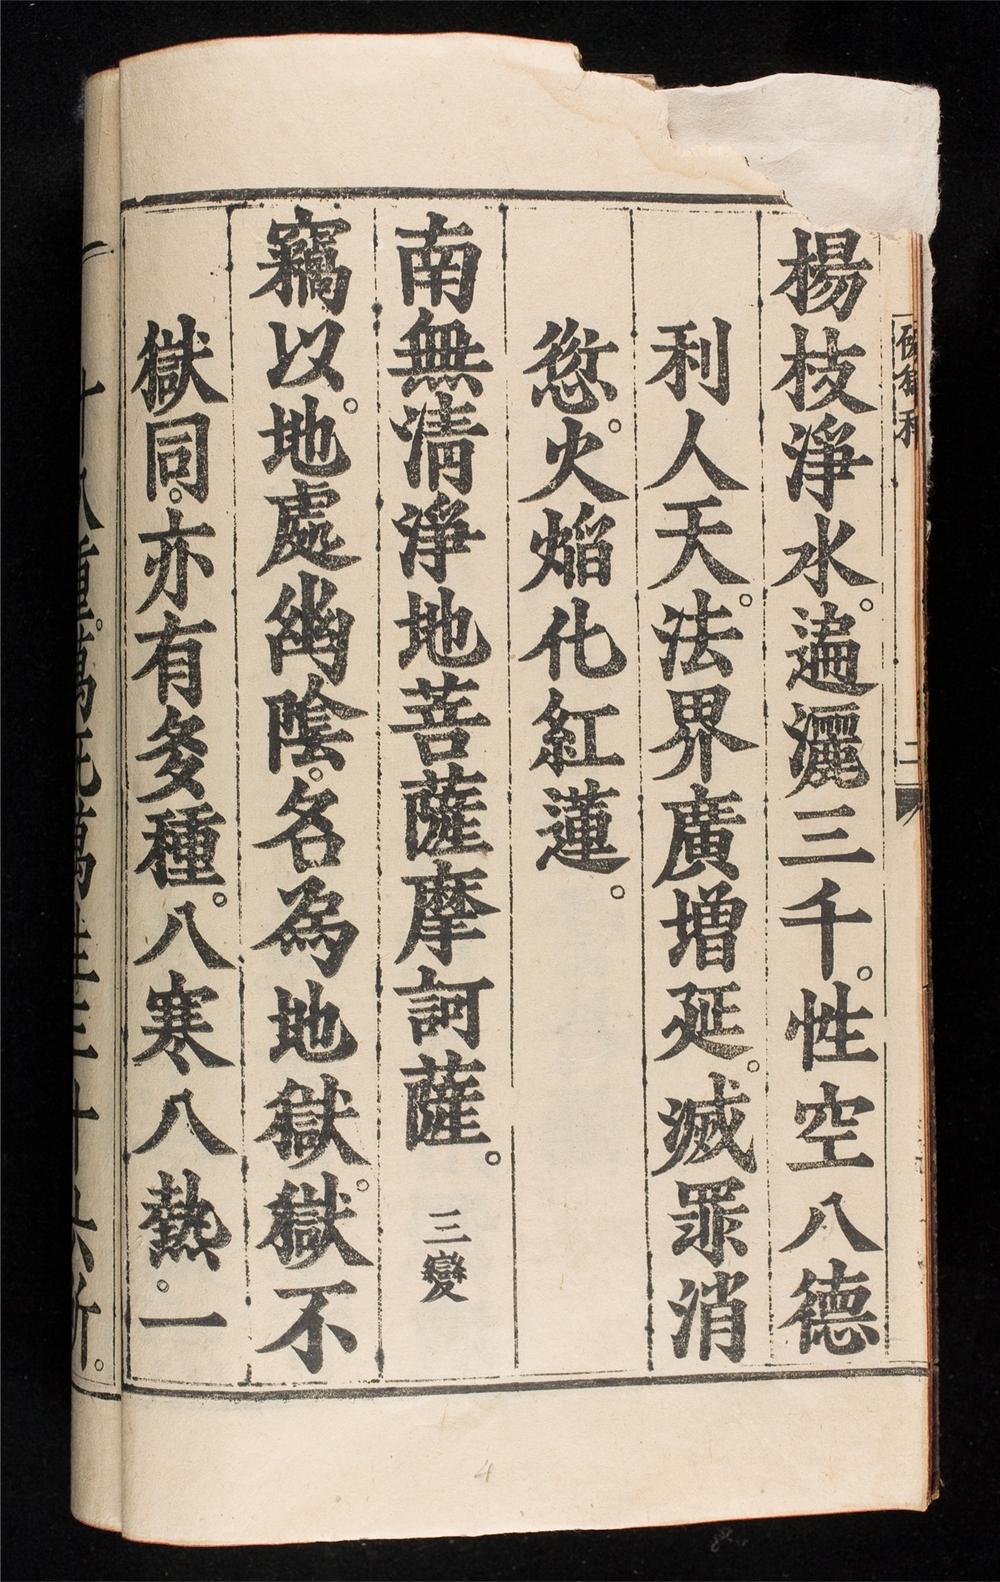 楊枝淨水。遍灑三千。性空八德
利人天。法界廣增延。滅罪消
愆。火焰化紅蓮。
南無清淨地菩薩摩訶薩。三變
竊以。地處幽陰。名為地獄。獄不
獄同。亦有多種。八寒八熱。一